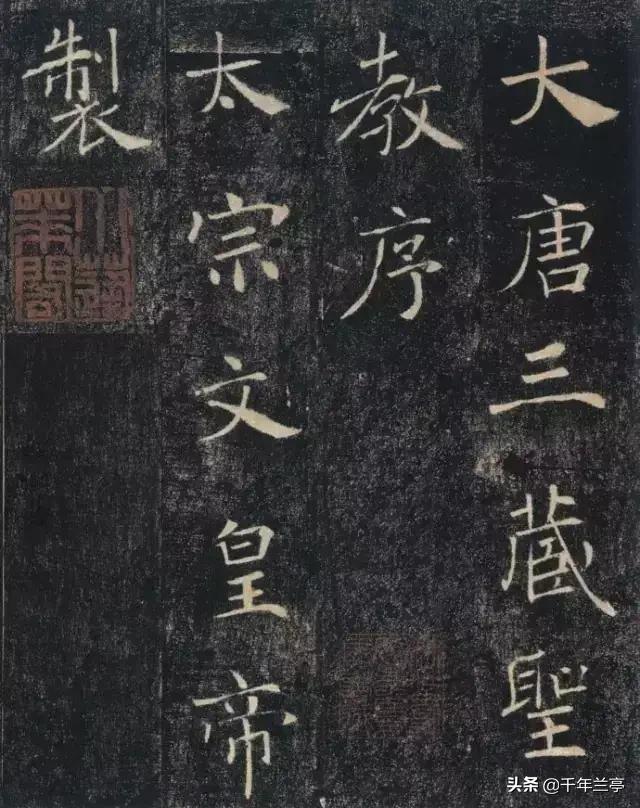 大唐三藏聖
教序
太宗文皇帝
製
頭条@千年兰亭